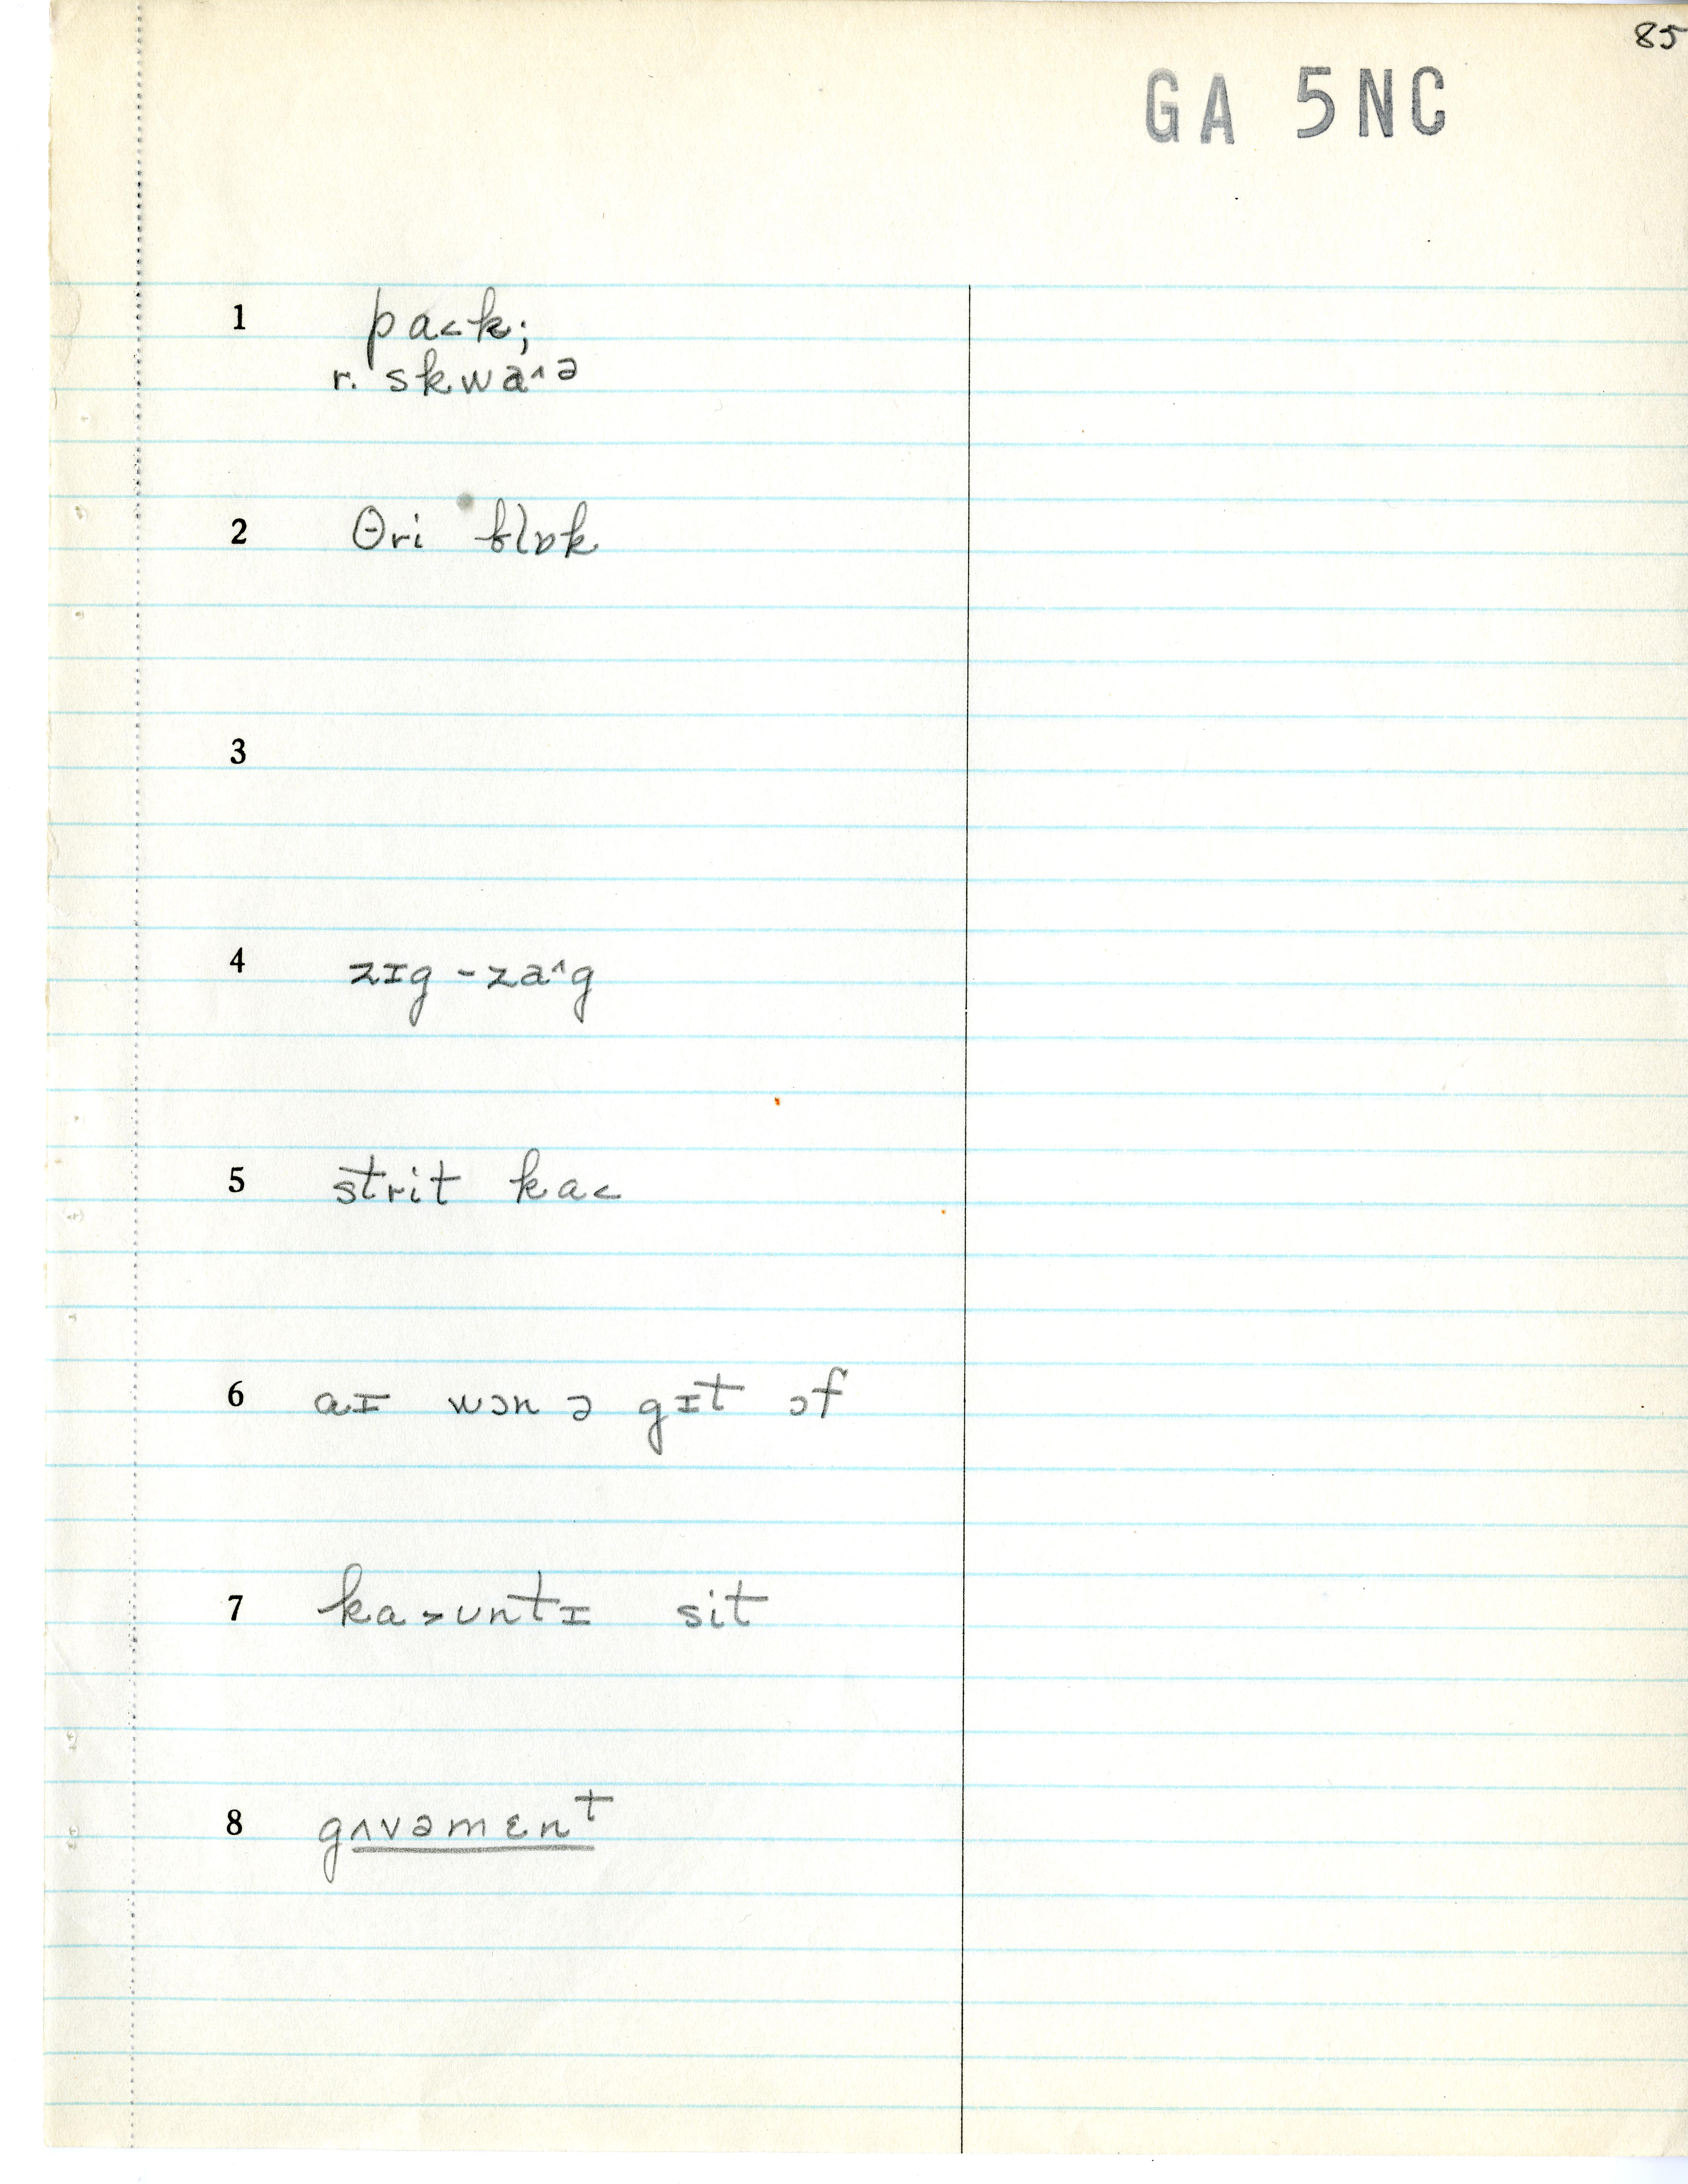 85
GA 5NC
1 pa˂k;
r. skwa˄ə
2 θri blɒk
3
4 zɪg-za˄g
5 strit ka˂
6 aɪ wɔn ə gɪt ɔf
7 ka˃ʊntɪ sit
8 gʌvəmɛnᵗ